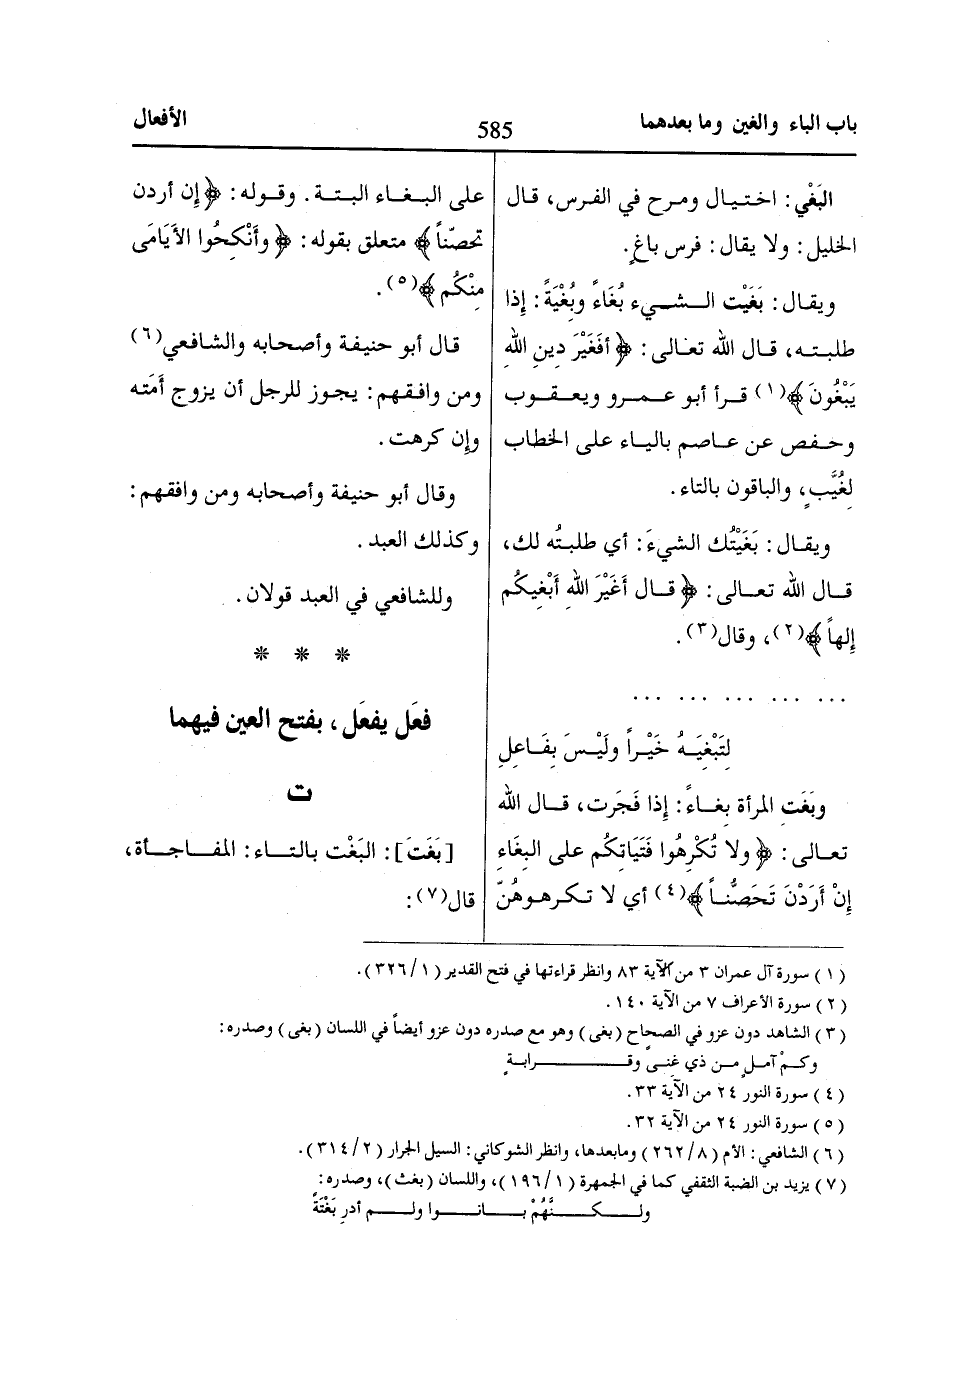 باب الباء والغين وما بعدهما
585
الأفعال
البَغْي: اختيال ومرح في الفرس، قال
الخليل: ولا يقال: فرس باغٍ.
ويقال: بَغَيْت الشيء بُغَاءً وبُغْيَةً: إذا
طلبته، قال الله تعالى: ﴿ أفَغَيْرَ دِينِ اللهِ
يَبْغُونَ ﴾(١) قرأ أبو عمرو ويعقوب
وحفص عن عاصم بالياء على الخطاب
لغُيَّبٍ، والباقون بالتاء.
ويقال: بَغَيْتُك الشيءَ: أي طلبتُه لك،
قال الله تعالى: ﴿ قال أغَيْرَ اللهِ أبْغيكُم
إلهاً ﴾(٢)، وقال(٣).
... ... ... ... ...
لِتَبْغيَهُ خَيْراً ولَيْسَ بِفَاعلِ
وبَغَت المرأة بغاءً: إذا فَجَرت، قال الله
تعالى: ﴿ ولا تُكْرهُوا فَتَيَاتِكُم على البغَاءِ
إنْ أرَدْنَ تَحَصُّناً ﴾(٤) أي لا تكرهوهُنّ
على البغاء البتة. وقوله: ﴿ إن أردن
تحصّناً ﴾ متعلق بقوله: ﴿ وأنْكِحُوا الأيَامَى
مِنْكُم ﴾(٥).
قال أبو حنيفة وأصحابه والشافعي(٦)
ومن وافقهم: يجوز للرجل أن يزوج أمَته
وإن كرهت.
وقال أبو حنيفة وأصحابه ومن وافقهم:
وكذلك العبد.
وللشافعي في العبد قولان.
* * *
فعَل يفعَل، بفتح العين فيهما
ت
[بَغَتَ]: البَغْت بالتاء: المفاجأة،
قال(٧):
(١) سورة آل عمران ٣ من الآية ٨٣ وانظر قراءتها في فتح القدير (١/٣٢٦).
(٢) سورة الأعراف ٧ من الآية ١٤٠.
(٣) الشاهد دون عزو في الصحاح (بغى) وهو مع صدره دون عزو أيضاً في اللسان (بغى) وصدره:
وكمْ آملٍ من ذي غنىً وقرابةٍ
(٤) سورة النور ٢٤ من الآية ٣٣.
(٥) سورة النور ٢٤ من الآية ٣٢.
(٦) الشافعي: الأم (٨/٢٦٢) ومابعدها، وانظر الشوكاني: السيل الجرار (٢/٣١٤).
(٧) يزيد بن الضبة الثقفي كما في الجمهرة (١/١٩٦)، واللسان (بغث)، وصدره:
ولكنَّهُمْ بانوا ولم أدرِ بَغْتَةً